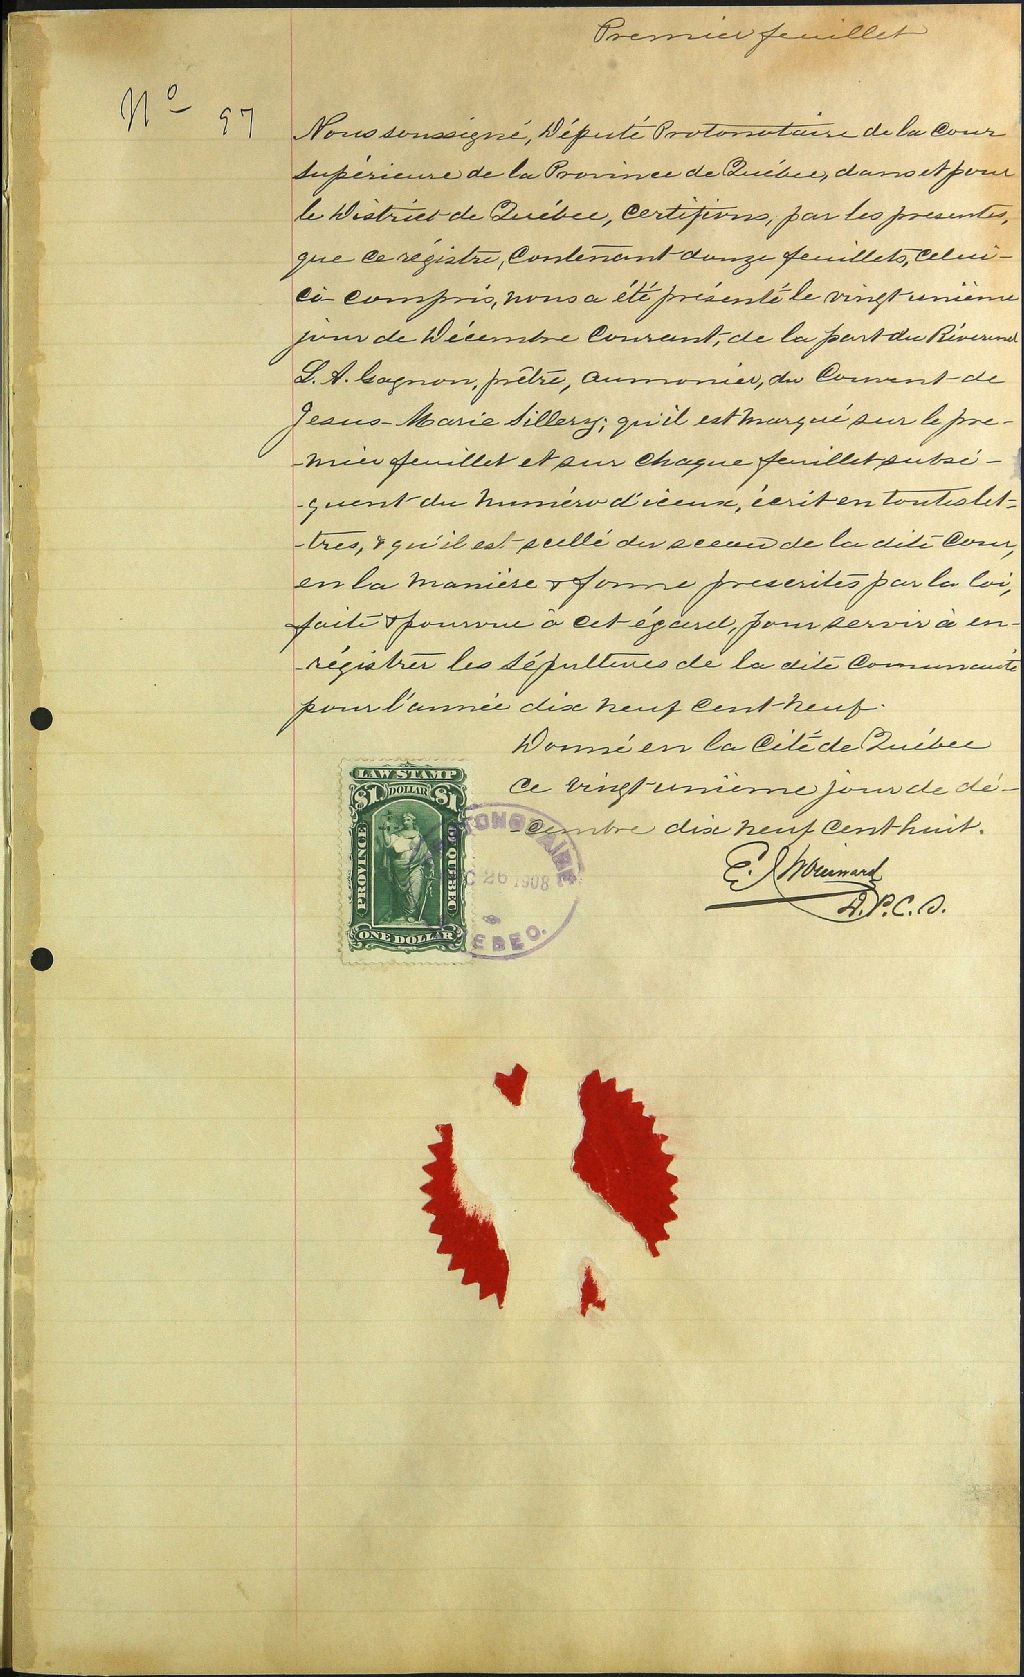 Premier feuillet
No 97
Nous soussigné, Député Protonotaire de la Cour
Supérieure de la Province de Québec, dans et pour
le District de Québec, Certifions, par les presentes,
que ce régistre, Contenant douze feuillets, Celui-
ci compris, nous a été présenté le vingt unième
jour de Décembre Courant, de la part du Réverend
L. A. Gagnon, prêtre, aumonier, du Couvent de
Jesus-Marie Sillery; qu'il est marqué sur le pre-
-mier feuillet et sur chaque feuillet subsé-
-quent du Numéro d'iceux, écrit en toutes let-
-tres, & qu'il est scellé du sceau de la dite Cour,
en la manière & forme prescrites par la loi,
faite & pourvue à cet égard, pour servir à en-
-régistrer les Sépultures de la dite Communauté
pour l'année dix neuf cent neuf.
Donné en la Cité de Québec
ce vingt unième jour de dé-
-cembre dix neuf cent huit.
E. J.
D.P.C.S.
LAW STAMP
$1 DOLLAR $1
PROVINCE OF QUEBEC
ONE DOLLAR
PROTONOTAIRE
DEC 26 1908
QUEBEC.